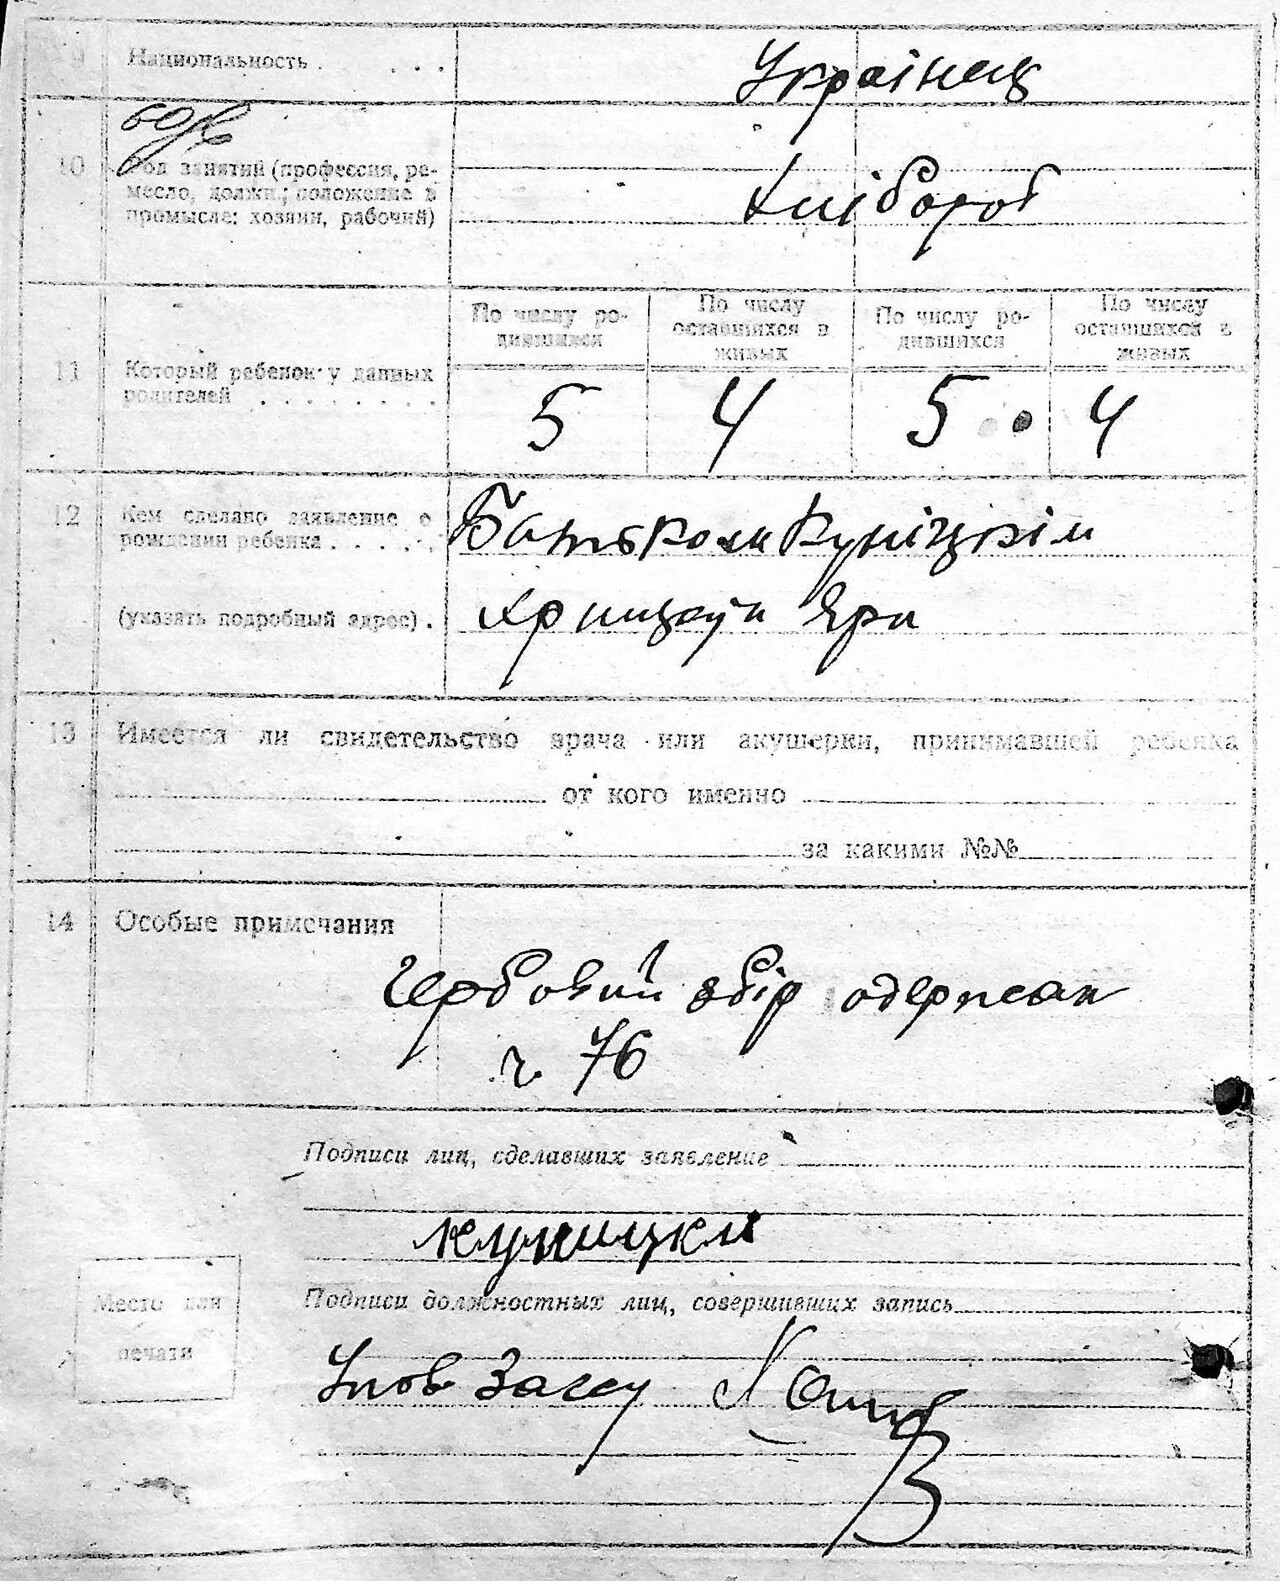 9 Национальность . . . .
Українец
10 Род занятий (профессия, ре-
месло, должн.; положение в
промысле: хозяин, рабочий)
Хлібороб
По числу ро-
дившихся
По числу
оставшихся в
живых
По числу ро-
дившихся
По числу
оставшихся в
живых
11 Который ребенок у данных
родителей . . . . . . . .
5 4 5 4
12 Кем сделано заявление о
рождении ребенка . . . . .
Батьком Куніцкім
(указать подробный адрес) .
Яри
13 Имеется ли свидетельство врача или акушерки, принимавшей ребенка
от кого именно
за какими №№
14 Особые примечания
Гербовий збір одержан
ч. 76
Подписи лиц, сделавших заявление
куницки
Место для
печати
Подписи должностных лиц, совершивших запись
Упов Загсу